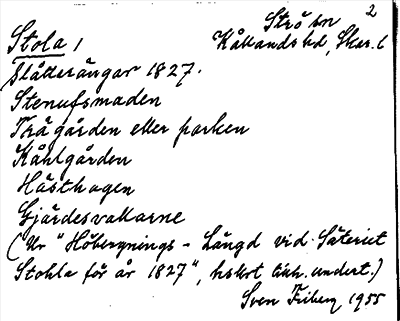 2
Strö sn
Stola 1 Kållands hd, Skar. l
Slåtterängar 1827.
Stenufsmaden
Trägården eller parken
Kåhlgården
Hästhagen
Gjärdesvallarne
(Ur "Höbergnings-Längd vid Säteriet
Stohla för år 1827", hskrt tillh. undert.)
Sven Friberg 1955